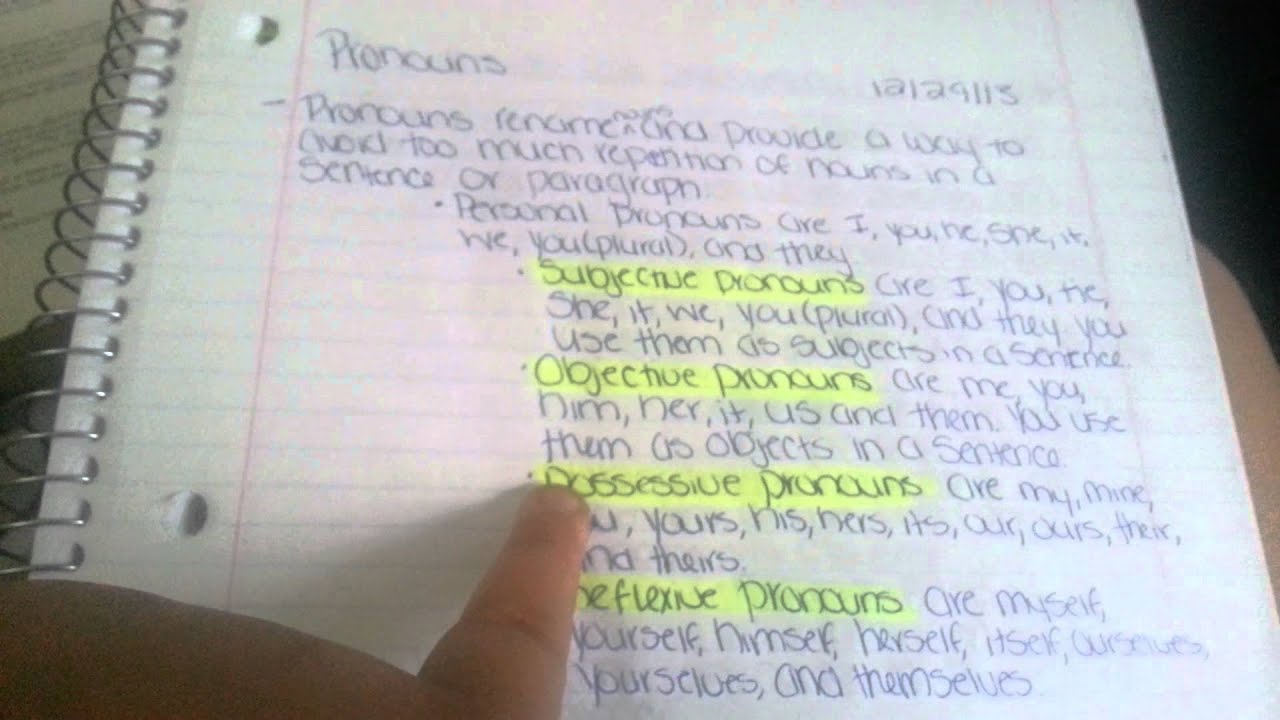 Pronouns
12/29/13
- Pronouns rename nouns and provide a way to
avoid too much repention of nouns in a
sentence or paragraph.
• Personal pronouns are I, you, he, she, it,
we, you(plural), and they
• Subjective pronouns are I, you, he,
she, it, we, you(plural), and they you
use them as subjects in a sentence.
• Objective pronouns are me, you,
him, her, it, us and them. You use
them as objects in a sentence.
• Possessive pronouns are my, mine,
yours, his, hers, its, our, ours, their,
and theirs.
Reflexive pronouns are myself,
yourself, himself, herself, itself, ourselves,
yourselves, and themselves.